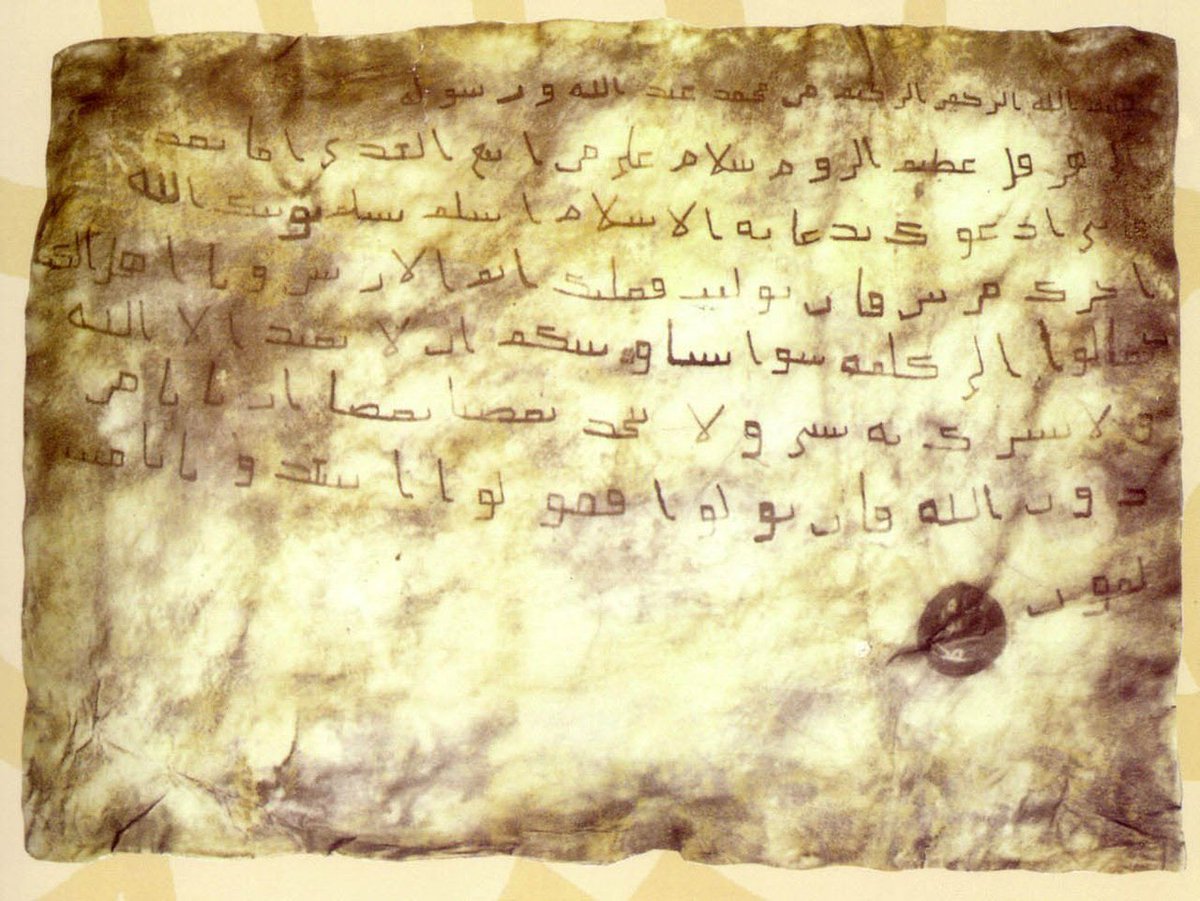 بسم الله الرحمن الرحيم من محمد عبد الله ورسوله
الى هرقل عظيم الروم سلام على من اتبع الهدى اما بعد
فانى ادعوك بدعاية الاسلام اسلم تسلم يوتك الله
اجرك مرتين فان توليت فعليك اثم الاريسين ويا اهل الكتب
تعالوا الى كلمة سوا بيننا وبينكم ان لا نعبد الا الله
و لا نشرك به شى ولا يتخذ بعضنا بعضا اربابا من
دون الله فان تولوا فقولوا اشهدوا بانا مس
لمون